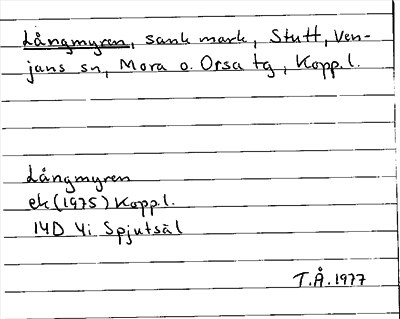 Långmyren, sank mark, Stutt, Ven-
jans sn, Mora o. Orsa tg, Kopp.l.
Långmyren
ek (1975) Kopp.l.
14D 4i Spjutsäl
T.Å. 1977